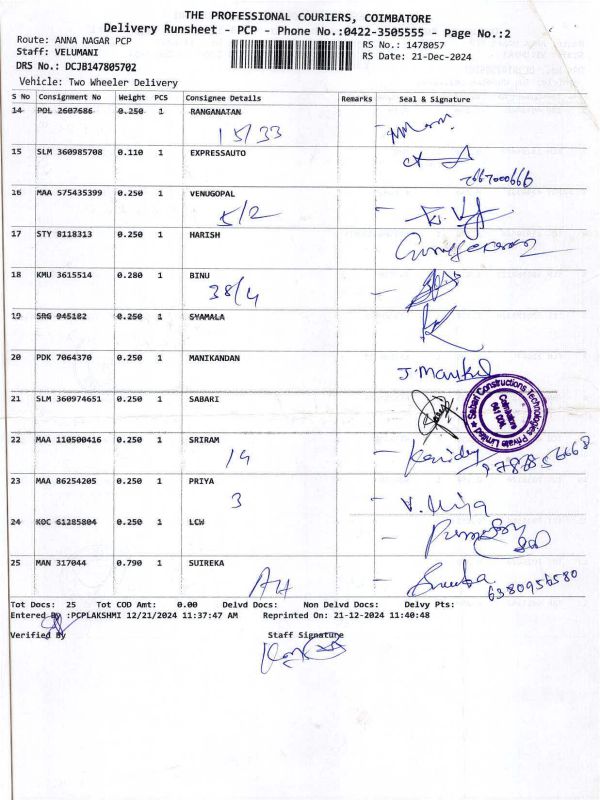 THE PROFESSIONAL COURIERS, COIMBATORE
Delivery Runsheet - PCP - Phone No.:0422-3505555 - Page No.:2
Route: ANNA NAGAR PCP
RS No.: 1478057
Staff: VELUMANI
RS Date: 21-Dec-2024
DRS No.: DCJB147805702
Vehicle: Two Wheeler Delivery
S No Consignment No Weight PCS Consignee Details Remarks Seal & Signature
14 POL 2607686 0.250 1 RANGANATAN
15/33
15 SLM 360985708 0.110 1 EXPRESSAUTO
7667000999
16 MAA 575435399 0.250 1 VENUGOPAL
5/2
17 STY 8118313 0.250 1 HARISH
18 KMU 3615514 0.280 1 BINU
38/4
19 SRG 945182 0.250 1 SYAMALA
20 PDK 7064370 0.250 1 MANIKANDAN
21 SLM 360974651 0.250 1 SABARI
Sabari Constructions Technologies Private Limited
Coimbatore
641 004
22 MAA 110500416 0.250 1 SRIRAM
19
23 MAA 86254205 0.250 1 PRIYA
3
24 KOC 61285804 0.250 1 LCW
25 MAN 317044 0.790 1 SUIREKA
6380956580
Tot Docs: 25 Tot COD Amt: 0.00 Delvd Docs: Non Delvd Docs: Delvy Pts:
Entered By :PCPLAKSHMI 12/21/2024 11:37:47 AM Reprinted On: 21-12-2024 11:40:48
Verified By Staff Signature